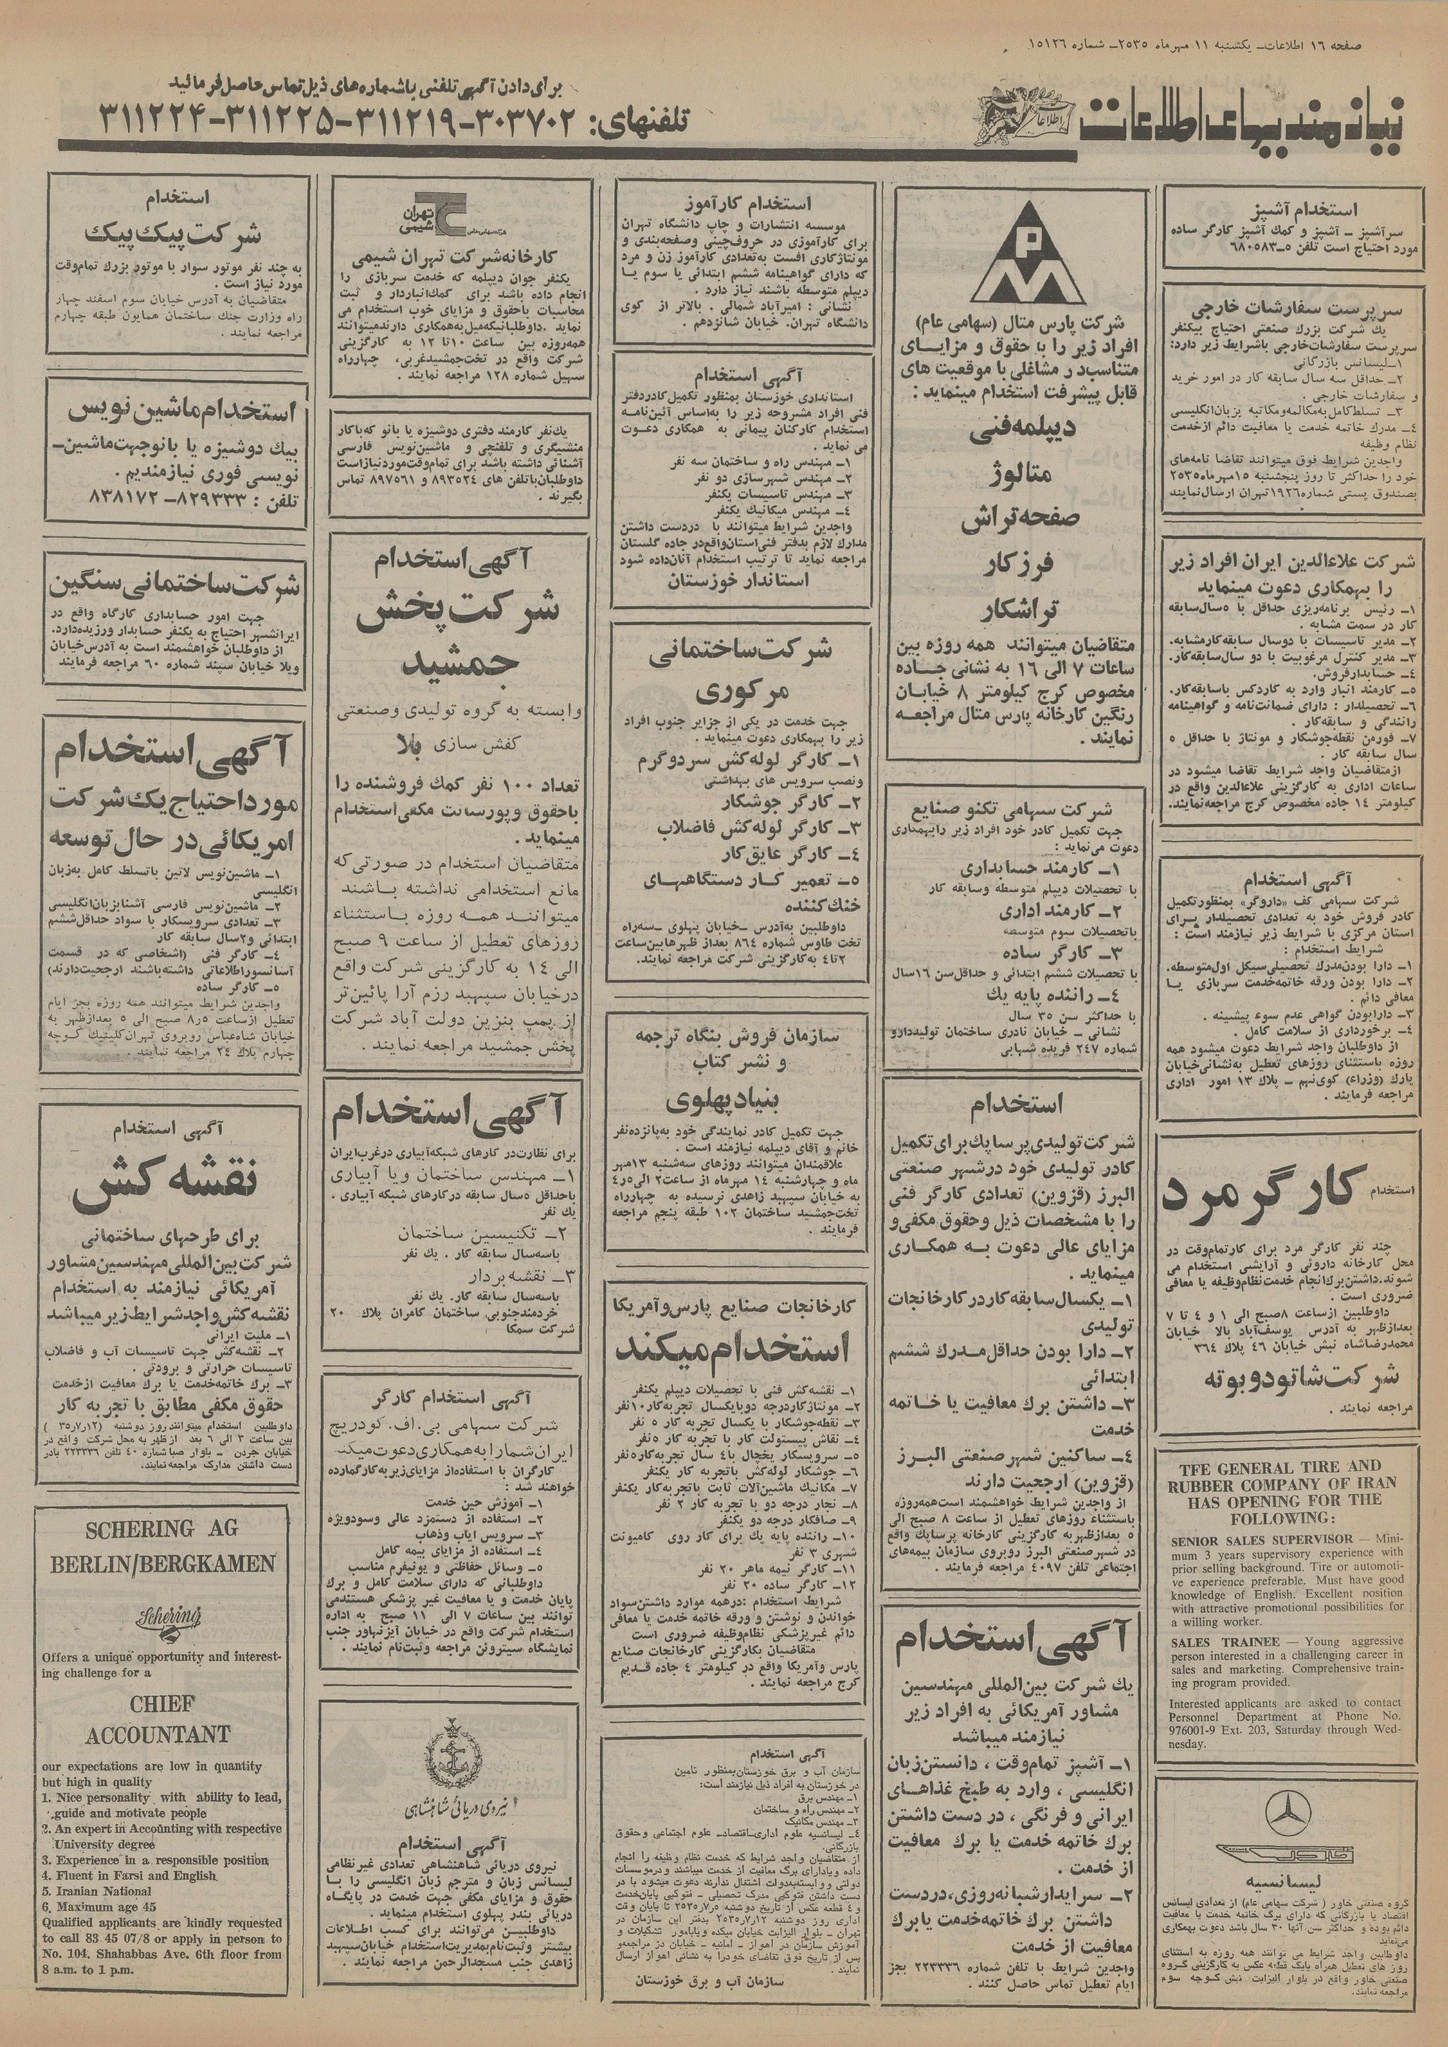 صفحه ۱۶ اطلاعات ـ یکشنبه ۱۱ مهرماه ۲۵۳۵ ـ شماره ۱۵۱۲۶
نیازمندیهای اطلاعات
برای دادن آگهی تلفنی باشماره‌های ذیل تماس حاصل فرمائید
تلفنهای: ۳۰۳۷۰۲-۳۱۱۲۱۹-۳۱۱۲۲۵-۳۱۱۲۲۴
استخدام آشپز
سرآشپز ـ آشپز و کمك آشپز کارگر ساده
مورد احتیاج است تلفن ۵ـ۶۸۰۵۸۳
سرپرست سفارشات خارجی
یك شرکت بزرك صنعتی احتیاج بیکنفر
سرپرست سفارشات‌خارجی باشرایط زیر دارد:
۱ـ لیسانس بازرگانی
۲ـ حداقل سه سال سابقه کار در امور خرید
و سفارشات خارجی .
۳ـ تسلط‌کامل‌به‌مکالمه‌ومکاتبه بزبان‌انگلیسی
۴ـ مدرك خاتمه خدمت یا معافیت دائم ازخدمت
نظام وظیفه
واجدین شرایط فوق میتوانند تقاضا نامه‌های
خود را حداکثر تا روز پنجشنبه ۱۵مهرماه۲۵۳۵
بصندوق پستی شماره۱۹۲۶تهران ارسال‌نمایند
شرکت علاءالدین ایران افراد زیر
را بهمکاری دعوت مینماید
۱ـ رئیس برنامه‌ریزی حداقل با ۵سال‌سابقه
کار در سمت مشابه .
۲ـ مدیر تاسیسات با دوسال سابقه‌کارمشابه.
۳ـ مدیر کنترل مرغوبیت با دو سال‌سابقه‌کار.
۴ـ حسابدارفروش.
۵ـ کارمند انبار وارد به کاردکس باسابقه‌کار.
۶ـ تحصیلدار : دارای ضمانت‌نامه و گواهینامه
رانندگی و سابقه‌کار .
۷ـ فورمن نقطه‌جوشکار و مونتاژ با حداقل ۵
سال سابقه کار .
ازمتقاضیان واجد شرایط تقاضا میشود در
ساعات اداری به کارگزینی علاءالدین واقع در
کیلومتر ۱۴ جاده مخصوص کرج مراجعه‌نمایند.
آگهی استخدام
شرکت سهامی کف «داروگر» بمنظورتکمیل
کادر فروش خود به تعدادی تحصیلدار برای
استان مرکزی با شرایط زیر نیازمند است :
شرایط استخدام :
۱ـ دارا بودن‌مدرك تحصیلی‌سیکل اول‌متوسطه.
۲ـ دارا بودن ورقه خاتمه‌خدمت سربازی یا
معافی دائم .
۳ـ دارابودن گواهی عدم سوء پیشینه .
۴ـ برخورداری از سلامت کامل .
از داوطلبان واجد شرایط دعوت میشود همه
روزه باستثنای روزهای تعطیل به‌نشانی‌خیابان
پارك (وزراء) کوی‌نهم ـ پلاك ۱۳ امور اداری
مراجعه فرمایند .
استخدام کارگر مرد
چند نفر کارگر مرد برای کارتمام‌وقت در
محل کارخانه داروئی و آرایشی استخدام می
شوند.داشتن‌برك‌انجام خدمت‌نظام‌وظیفه یا معافی
ضروری است .
داوطلبین ازساعت ۸صبح الی ۱ و ۴ تا ۷
بعدازظهر به آدرس یوسف‌آباد بالا خیابان
محمدرضاشاه نبش خیابان ۴۶ پلاك ۳۶۴
شرکت‌شاتودوبوته
مراجعه نمایند .
TFE GENERAL TIRE AND
RUBBER COMPANY OF IRAN
HAS OPENING FOR THE
FOLLOWING:
SENIOR SALES SUPERVISOR — Mini-
mum 3 years supervisory experience with
prior selling background. Tire or automoti-
ve experience preferable. Must have good
knowledge of English. Excellent position
with attractive promotional possibilities for
a willing worker.
SALES TRAINEE — Young aggressive
person interested in a challenging career in
sales and marketing. Comprehensive train-
ing program provided.
Interested applicants are asked to contact
Personnel Department at Phone No.
976001-9 Ext. 203, Saturday through Wed-
nesday.
خاور
لیسانسیه
گروه صنعتی خاور ( شرکت سهامی عام) از تعدادی لیسانس
اقتصاد یا بازرگانی که دارای برگ خاتمه خدمت یا معافیت
دائم بوده و حداکثر سن آنها ۳۰ سال باشد دعوت بهمکاری
می‌نماید
داوطلبین واجد شرایط می توانند همه روزه به استثنای
روز های تعطیل همراه بایك قطعه عکس به کارگزینی گروه
صنعتی خاور واقع در بلوار الیزابت نبش کوچه سوم
مراجعه نمایند.
شرکت پارس متال (سهامی عام)
افراد زیر را با حقوق و مزایای
متناسب‌در مشاغلی با موقعیت های
قابل پیشرفت استخدام مینماید :
دیپلمه‌فنی
متالوژ
صفحه‌تراش
فرزکار
تراشکار
متقاضیان میتوانند همه روزه بین
ساعات ۷ الی ۱۶ به نشانی جاده
مخصوص کرج کیلومتر ۸ خیابان
رنگین کارخانه پارس متال مراجعه
نمایند .
شرکت سهامی تکنو صنایع
جهت تکمیل کادر خود افراد زیر رابهمکاری
دعوت می‌نماید :
۱ـ کارمند حسابداری
با تحصیلات دیپلم متوسطه وسابقه کار
۲ـ کارمند اداری
باتحصیلات سوم متوسطه
۳ـ کارگر ساده
با تحصیلات ششم ابتدائی و حداقل‌سن ۱۶سال
۴ـ راننده پایه یك
با حداکثر سن ۳۵ سال
نشانی ـ خیابان نادری ساختمان تولیددارو
شماره ۲۴۷ فریده شهابی
استخدام
شرکت تولیدی پرساپك برای تکمیل
کادر تولیدی خود درشهر صنعتی
البرز (قزوین) تعدادی کارگر فنی
را با مشخصات ذیل وحقوق مکفی‌و
مزایای عالی دعوت به همکاری
مینماید .
۱ـ یکسال‌سابقه‌کاردرکارخانجات
تولیدی
۲ـ دارا بودن حداقل‌مدرك ششم
ابتدائی
۳ـ داشتن برك معافیت یا خاتمه
خدمت
۴ـ ساکنین شهر صنعتی البرز
(قزوین) ارجحیت دارند
از واجدین شرایط خواهشمند است‌همه‌روزه
باستثناء روزهای تعطیل از ساعت ۸ صبح الی
۵ بعدازظهربه کارگزینی کارخانه پرساپك واقع
در شهرصنعتی البرز روبروی سازمان بیمه‌های
اجتماعی تلفن ۴۰۹۷ مراجعه فرمایند .
آگهی استخدام
یك شرکت بین‌المللی مهندسین
مشاور آمریکائی به افراد زیر
نیازمند میباشد
۱ـ آشپز تمام‌وقت ، دانستن‌زبان
انگلیسی ، وارد به طبخ غذاهای
ایرانی و فرنگی ، در دست داشتن
برك خاتمه خدمت یا برك معافیت
از خدمت .
۲ـ سرایدارشبانه‌روزی،دردست
داشتن برك خاتمه‌خدمت یابرك
معافیت از خدمت
واجدین شرایط با تلفن شماره ۲۲۳۳۳۶ بجز
ایام تعطیل تماس حاصل کنند .
استخدام کارآموز
موسسه انتشارات و چاپ دانشگاه تهران
برای کارآموزی در حروفچینی وصفحه‌بندی و
مونتاژکاری افست به‌تعدادی کارآموز زن و مرد
که دارای گواهینامه ششم ابتدائی یا سوم یا
دیپلم متوسطه باشند نیاز دارد .
نشانی : امیرآباد شمالی . بالاتر از کوی
دانشگاه تهران. خیابان شانزدهم .
آگهی استخدام
استانداری خوزستان بمنظور تکمیل کادردفتر
فنی افراد مشروحه زیر را براساس آئین‌نامه
استخدام کارکنان پیمانی به همکاری دعوت
می نماید .
۱ـ مهندس راه و ساختمان سه نفر
۲ـ مهندس شهرسازی دو نفر
۳ـ مهندس تاسیسات یکنفر
۴ـ مهندس میکانیك یکنفر
واجدین شرایط میتوانند با دردست داشتن
مدارك لازم بدفتر فنی‌استان‌واقع‌در جاده گلستان
مراجعه نماید تا ترتیب استخدام آنان‌داده شود
استاندار خوزستان
شرکت‌ساختمانی
مرکوری
جهت خدمت در یکی از جزایر جنوب افراد
زیر را بهمکاری دعوت مینماید .
۱ـ کارگر لوله‌کش سردوگرم
ونصب سرویس های بهداشتی
۲ـ کارگر جوشکار
۳ـ کارگر لوله‌کش فاضلاب
۴ـ کارگر عایق‌کار
۵ـ تعمیر کار دستگاههای
خنك‌کننده
داوطلبین به‌آدرس ـخیابان پهلوی ـسه‌راه
تخت طاوس شماره ۸۶۴ بعداز ظهرهابین‌ساعت
۲تا۴ به‌کارگزینی شرکت مراجعه نمایند.
سازمان فروش بنگاه ترجمه
و نشر کتاب
بنیادپهلوی
جهت تکمیل کادر نمایندگی خود به‌پانزده‌نفر
خانم و آقای دیپلمه نیازمند است .
علاقمندان میتوانند روزهای سه‌شنبه ۱۳مهر
ماه و چهارشنبه ۱۴ مهرماه از ساعت۲ الی۴ر۵
به خیابان سپهبد زاهدی نرسیده به چهارراه
تخت‌جمشید ساختمان ۱۰۲ طبقه پنجم مراجعه
فرمایند .
کارخانجات صنایع پارس‌وآمریکا
استخدام میکند
۱ـ نقشه‌کش فنی با تحصیلات دیپلم یکنفر
۲ـ مونتاژکاردرجه دوبایکسال تجربه‌کار۱۰نفر
۳ـ نقطه‌جوشکار با یکسال تجربه کار ۵ نفر
۴ـ نقاش پیستولت کار با تجربه کار ۵نفر
۵ـ سرویسکار یخچال با۴ سال تجربه‌کار۵نفر
۶ـ جوشکار لوله‌کش باتجربه کار یکنفر
۷ـ مکانیك ماشین‌آلات ثابت باتجربه‌کار یکنفر
۸ـ نجار درجه دو با تجربه کار ۲ نفر
۹ـ صافکار درجه دو یکنفر
۱۰ـ راننده پایه یك برای کار روی کامیونت
شهری ۳ نفر
۱۱ـ کارگر نیمه ماهر ۲۰ نفر
۱۲ـ کارگر ساده ۲۰ نفر
شرایط استخدام :درهمه موارد داشتن‌سواد
خواندن و نوشتن و ورقه خاتمه خدمت یا معافی
دائم غیرپزشکی نظام‌وظیفه ضروری است
متقاضیان بکارگزینی کارخانجات صنایع
پارس وآمریکا واقع در کیلومتر ۴ جاده قدیم
کرج مراجعه نمایند .
آگهی استخدام
سازمان آب و برق خوزستان‌بمنظور تامین
در خوزستان به افراد ذیل نیازمند است:
۱ـ مهندس برق
۲ـ مهندس راه و ساختمان
۳ـ مهندس مکانیك
۴ـ لیسانسیه علوم اداری‌ـ‌اقتصاد‌ـ علوم اجتماعی وحقوق
بازرگانی.
از متقاضیان واجد شرایط که خدمت نظام وظیفه را انجام
داده ویادارای برگ معافیت از خدمت میباشند ودرموسسات
دولتی ووابسته‌بدولت اشتغال ندارند دعوت میشود با در
دست داشتن فتوکپی مدرک تحصیلی ـ فتوکپی پایان‌خدمت
و ۴ قطعه عکس از تاریخ دوشنبه ۲۵۳۵/۷/۵ تا پایان وقت
اداری روز دوشنبه ۲۵۳۵/۷/۱۲ بدفتر این سازمان در
تهران ـ بلوار الیزابت خیابان میکده ویابامور تشکیلات و
آموزش سازمان در اهواز ـ امانیه ـ خیابان دز مراجعه‌و
پس از تاریخ فوق تقاضای خودرا به نشانی اهواز ارسال
نمایند .
سازمان آب و برق خوزستان
تهران
شیمی
کارخانه شرکت تهران شیمی
یکنفر جوان دیپلمه که خدمت سربازی را
انجام داده باشد برای کمك‌انباردار و ثبت
محاسبات باحقوق و مزایای خوب استخدام می
نماید .داوطلبانیکه‌میل‌به‌همکاری دارندمیتوانند
همه‌روزه بین ساعت ۱۰تا ۱۲ به کارگزینی
شرکت واقع در تخت‌جمشیدغربی، چهارراه
سهیل شماره ۱۲۸ مراجعه نمایند .
یك‌نفر کارمند دفتری دوشیزه یا بانو که‌باکار
منشیگری و تلفنچی و ماشین‌نویس فارسی
آشنائی داشته باشد برای تمام‌وقت‌موردنیازاست
داوطلبان‌باتلفن های ۸۹۳۵۲۴ و ۸۹۷۵۶۱ تماس
بگیرند .
آگهی استخدام
شرکت‌پخش
جمشید
وابسته به گروه تولیدی وصنعتی
کفش سازی بلا
تعداد ۱۰۰ نفر کمك فروشنده را
باحقوق و پورسانت مکفی‌استخدام
مینماید .
متقاضیان استخدام در صورتی‌که
مانع استخدامی نداشته باشند
میتوانند همه روزه باستثناء
روزهای تعطیل از ساعت ۹ صبح
الی ۱۴ به کارگزینی شرکت واقع
درخیابان سپهبد رزم آرا پائین‌تر
از پمپ بنزین دولت آباد شرکت
پخش جمشید مراجعه نمایند .
آگهی استخدام
برای نظارت‌در کارهای شبکه‌آبیاری درغرب‌ایران
۱ـ مهندس ساختمان ویا آبیاری
باحداقل ۵سال سابقه درکارهای شبکه آبیاری .
یك نفر
۲ـ تکنیسین ساختمان
باسه‌سال سابقه کار . یك نفر
۳ـ نقشه‌بردار
باسه‌سال سابقه کار. یك نفر
خردمندجنوبی ساختمان کامران پلاك ۲۰
شرکت سمکا
آگهی استخدام کارگر
شرکت سهامی بی.اف.گودریچ
ایران‌شمارابه‌همکاری‌دعوت‌میکند
کارگران با استفاده‌از مزایای‌زیربه‌کارگمارده
خواهند شد :
۱ـ آموزش حین خدمت
۲ـ استفاده از دستمزد عالی وسودویژه
۳ـ سرویس ایاب وذهاب
۴ـ استفاده از مزایای بیمه کامل
۵ـ وسائل حفاظتی و یونیفرم مناسب
داوطلبانی که دارای سلامت کامل و برك
پایان خدمت و یا معافیت غیر پزشکی هستندمی
توانند بین ساعات ۷ الی ۱۱ صبح به اداره
استخدام شرکت واقع در خیابان آیزنهاور جنب
نمایشگاه سیتروئن مراجعه وثبت‌نام نمایند .
نیروی دریائی شاهنشاهی
آگهی استخدام
نیروی دریائی شاهنشاهی تعدادی غیرنظامی
لیسانس زبان و مترجم زبان انگلیسی را با
حقوق و مزایای مکفی جهت خدمت در پایگاه
دریائی بندر پهلوی استخدام مینماید .
داوطلبین می‌توانند برای کسب اطلاعات
بیشتر وثبت‌نام‌بمدیریت‌استخدام خیابان‌سپهبد
زاهدی جنب مسجدالرحمن مراجعه نمایند .
استخدام
شرکت پیك پیك
به چند نفر موتور سوار با موتور بزرك تمام‌وقت
مورد نیاز است .
متقاضیان به آدرس خیابان سوم اسفند چهار
راه وزارت جنك ساختمان همایون طبقه چهارم
مراجعه نمایند .
استخدام ماشین نویس
بیك دوشیزه یا بانوجهت‌ماشین‌ـ
نویسی فوری نیازمندیم .
تلفن : ۸۲۹۳۳۳ـ ۸۳۸۱۷۲
شرکت‌ساختمانی‌سنگین
جهت امور حسابداری کارگاه واقع در
ایرانشهر احتیاج به یکنفر حسابدار ورزیده‌دارد.
از داوطلبان خواهشمند است به آدرس‌خیابان
ویلا خیابان سپند شماره ۶۰ مراجعه فرمایند
آگهی استخدام
مورداحتیاج یك‌شرکت
امریکائی‌در حال توسعه
۱ـ ماشین‌نویس لاتین باتسلط کامل به‌زبان
انگلیسی
۲ـ ماشین‌نویس فارسی آشنابزبان‌انگلیسی
۳ـ تعدادی سرویسکار با سواد حداقل‌ششم
ابتدائی و۲سال سابقه کار
۴ـ کارگر فنی (اشخاصی که در قسمت
آسانسوراطلاعاتی داشته‌باشند ارجحیت‌دارند)
۵ـ کارگر ساده
واجدین شرایط میتوانند همه روزه بجز ایام
تعطیل ازساعت ۵ر۸ صبح الی ۵ بعدازظهر به
خیابان شاه‌عباس روبروی تهران‌کلینیك کوچه
چهارم پلاك ۲۴ مراجعه نمایند .
آگهی استخدام
نقشه کش
برای طرحهای ساختمانی
شرکت‌بین‌المللی‌مهندسین‌مشاور
آمریکائی نیازمند به استخدام
نقشه‌کش‌واجدشرایط‌زیرمیباشد
۱ـ ملیت ایرانی
۲ـ نقشه‌کش جهت تاسیسات آب و فاضلاب
تاسیسات حرارتی و برودتی .
۳ـ برك خاتمه‌خدمت یا برك معافیت ازخدمت
حقوق مکفی مطابق با تجربه کار
داوطلبین استخدام میتوانند روز دوشنبه (۳۵٫۷٫۱۲)
بین ساعت ۳ الی ۶ بعد از ظهر به محل شرکت واقع در
خیابان جردن ـ بلوار صبا شماره ۴۰ تلفن ۲۲۳۳۳۶ بادر
دست داشتن مدارک مراجعه‌نمایند.
SCHERING AG
BERLIN/BERGKAMEN
Schering
Offers a unique opportunity and interest-
ing challenge for a
CHIEF
ACCOUNTANT
our expectations are low in quantity
but high in quality
1. Nice personality with ability to lead,
guide and motivate people
2. An expert in Accounting with respective
University degree
3. Experience in a responsible position
4. Fluent in Farsi and English
5. Iranian National
6. Maximum age 45
Qualified applicants are kindly requested
to call 83 45 07/8 or apply in person to
No. 104, Shahabbas Ave. 6th floor from
8 a.m. to 1 p.m.